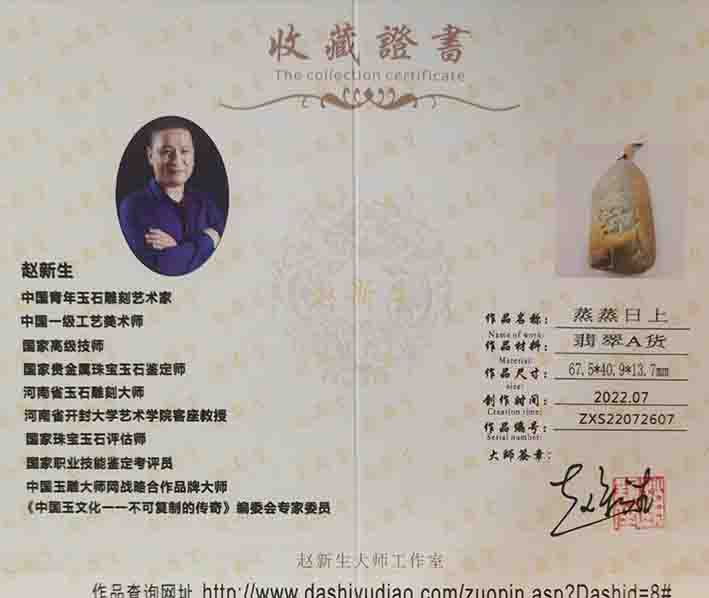 收藏證書
The collection certificate
赵新生
中国青年玉石雕刻艺术家
中国一级工艺美术师
国家高级技师
国家贵金属珠宝玉石鉴定师
河南省玉石雕刻大师
河南省开封大学艺术学院客座教授
国家珠宝玉石评估师
国家职业技能鉴定考评员
中国玉雕大师网战略合作品牌大师
《中国玉文化一一不可复制的传奇》编委会专家委员
赵新生
作品名称: 蒸蒸日上
Name of work:
作品材料: 翡翠A货
Material:
作品尺寸: 67.5*40.9*13.7mm
size:
创作时间: 2022.07
Creation time:
作品编号: ZXS22072607
Serial number:
大师签章:
赵新生大师工作室
作品查询网址 http://www.dashiyudiao.com/zuopin.asp?Dashid=8#